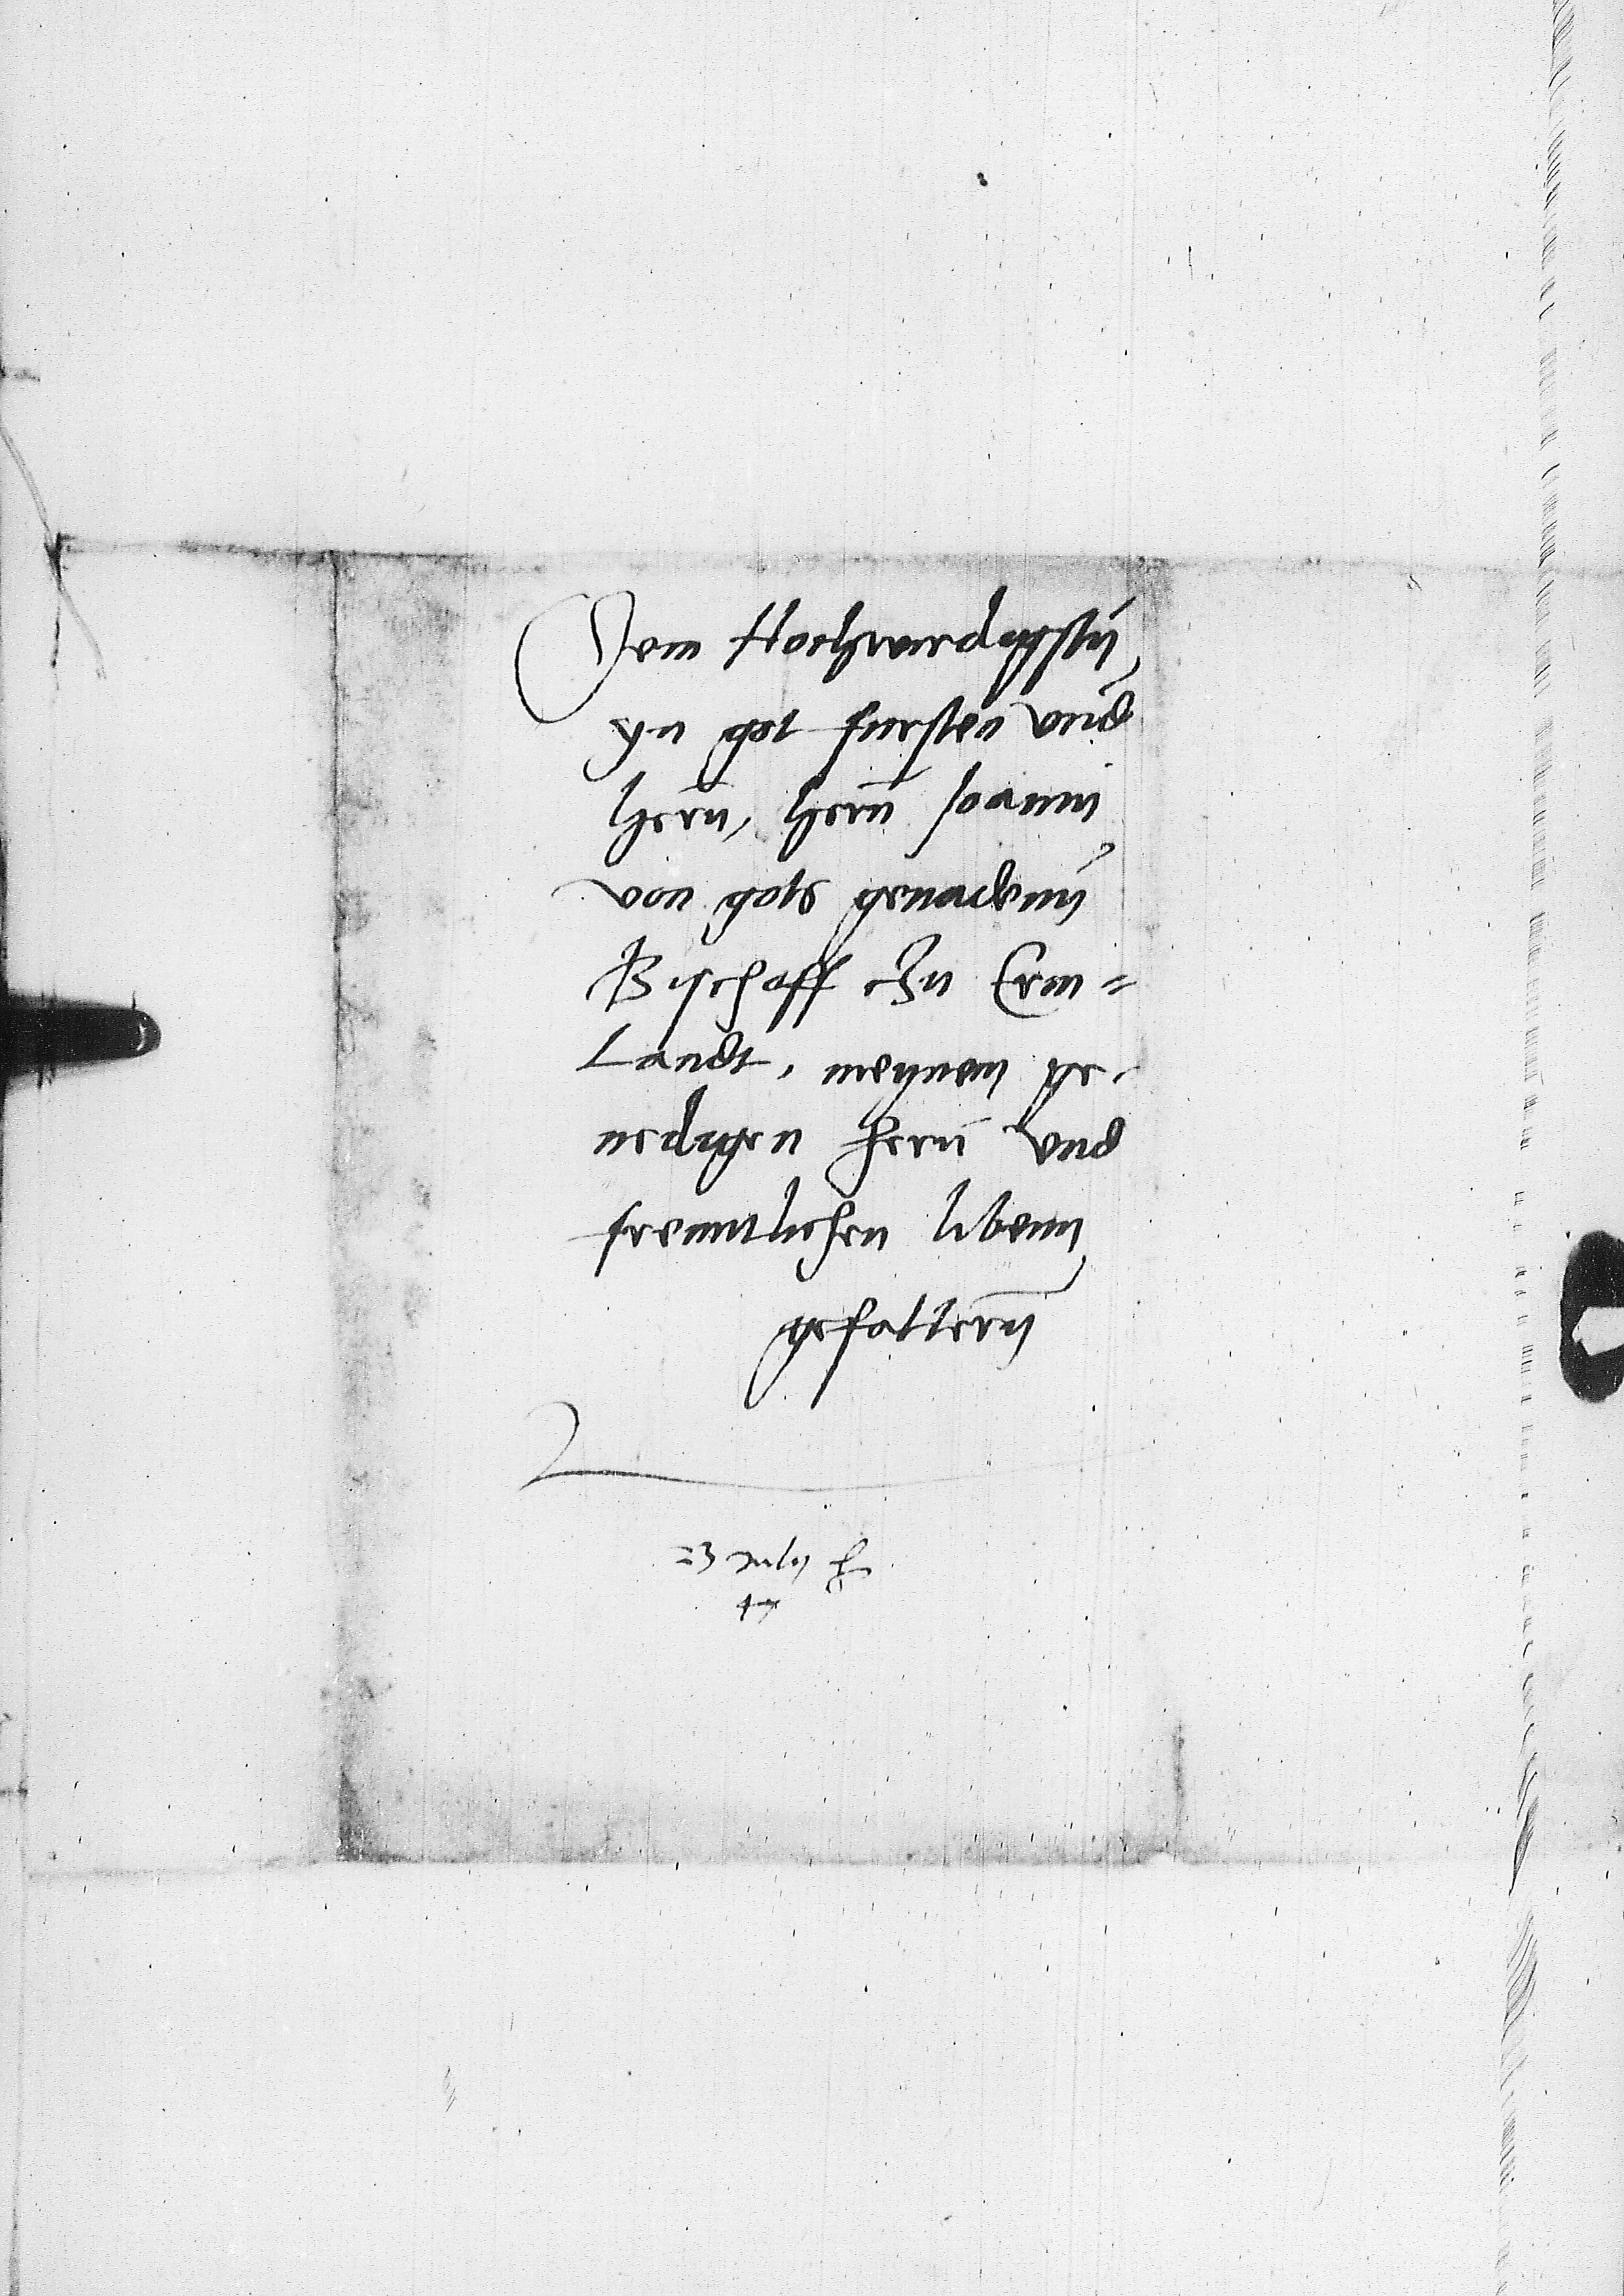 Dem Hochwirdigsten
yn got fursten vnd
hern, hern Joanni
von gots genadenn
Bischoff zu Erm=
Landt, meynem ge-
nedigen hern vnd
freuntlichen libenn
gefattern
23 Julij
47